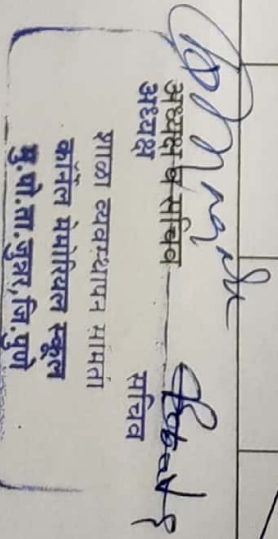 अध्यक्ष व सचिव
अध्यक्ष सचिव
शाळा व्यवस्थापन समिती
कॉर्नेल मेमोरियल स्कूल
मु.पो.ता.जुन्नर,जि.पुणे